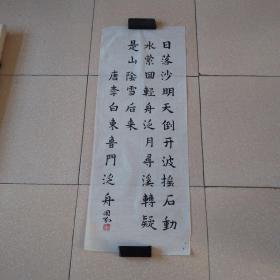 日落沙明天倒开波摇石動
水萦回輕舟泛月尋溪轉疑
是山陰雪后来
唐李白東魯門泛舟